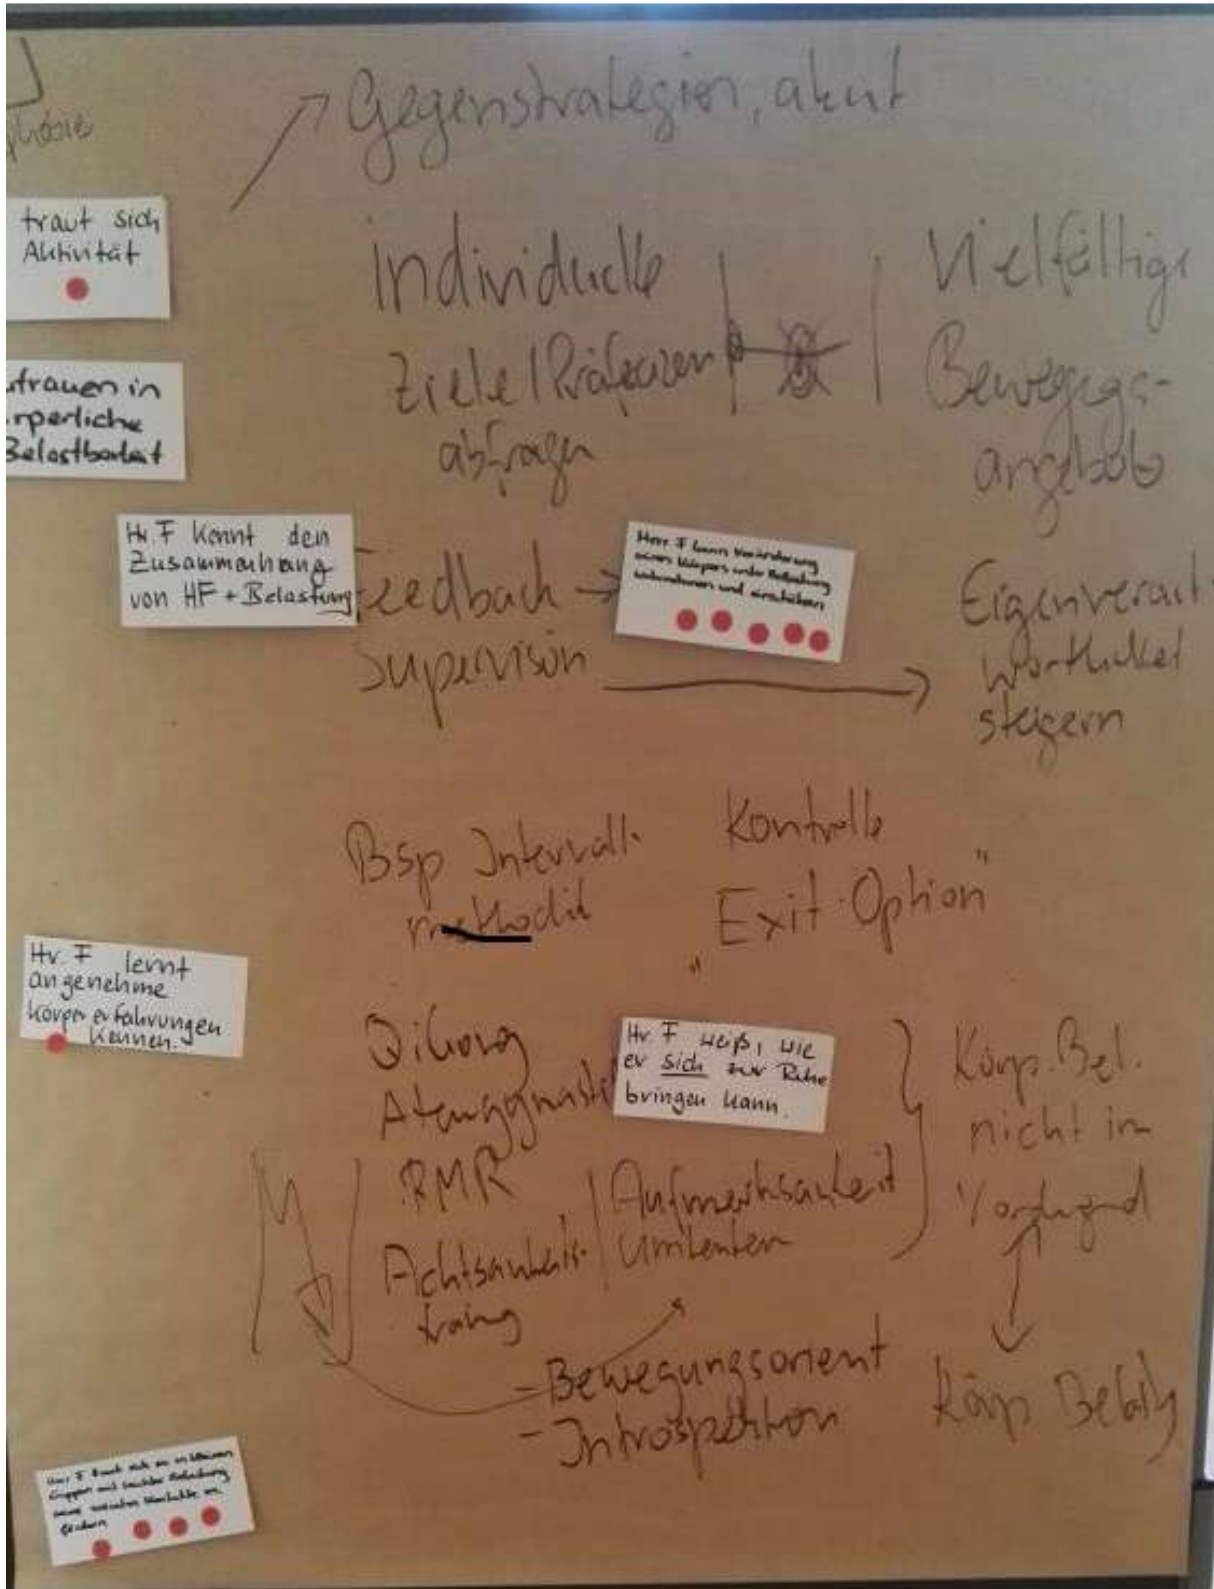 Gegenstrategien, akut
traut sich
Aktivität
Individuelle
Ziele / Präferenzen
abfragen
Vielfältige
Bewegungs-
angebote
trauen in
rperliche
Belastbarkeit
Hr. F kennt den
Zusammenhang
von HF + Belastung
Feedback
Supervision
Herr F kann Veränderung
seines Körpers unter Belastung
wahrnehmen und einschätzen
Eigenverant-
wortlichkeit
steigern
Bsp Intervall-
methodik
Kontrolle
"Exit-Option"
Hr. F lernt
angenehme
Körpererfahrungen
kennen.
QiGong
Atemgymnastik
PMR
Achtsamkeits-
training
Hr. F weiß, wie
er sich zur Ruhe
bringen kann.
Aufmerksamkeit
umlenken
Körp. Bel.
nicht im
Vordergrund
Körp Belastg
- Bewegungsorient
- Introspektion
Herr F traut sich in kleinen
Gruppen mit leichter Belastung